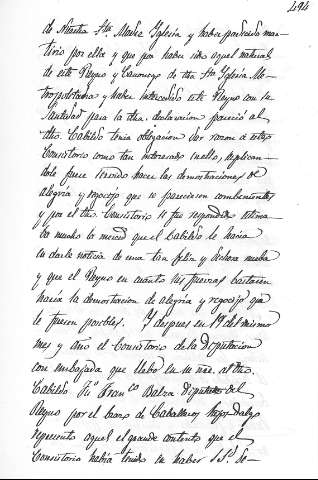 494
de Nuestra Sta. Madre Yglesia y haber padecido mar-
tirio por ella y que por haber sido aquel natural
de este Reyno y Canonigo de dha Sta Yglesia Me-
tropolitana y haber intercedido este Reyno con su
Santidad para la dha. declaracion pareció al
dho. Cabildo tenia obligacion dar razon á este
Consistorio como tan interesado en ello, suplican-
dole fuese servido hacer las demostraciones de
alegria y regocijo que le pareciesen combenientes
y por el dho. Consistorio le fue respondido estima-
ba mucho la merced que el Cabildo le hacia
en darle noticia de una tan feliz y dichosa nueba
y que el Reyno en cuanto sus fuerzas bastasen
haria la demostracion de alegria y regocijo que
le fuesen posibles. Y despues en 19 del mismo
mes y año el Consistorio de la Diputacion
con embajada que llebó en su nre. al dho.
Cabildo Fran.co Balza Diputado del
Reyno por el brazo de Caballeros hijos-dalgo
representó aquel el grande contento que el
Consistorio habia tenido en haber S.Sd. de-